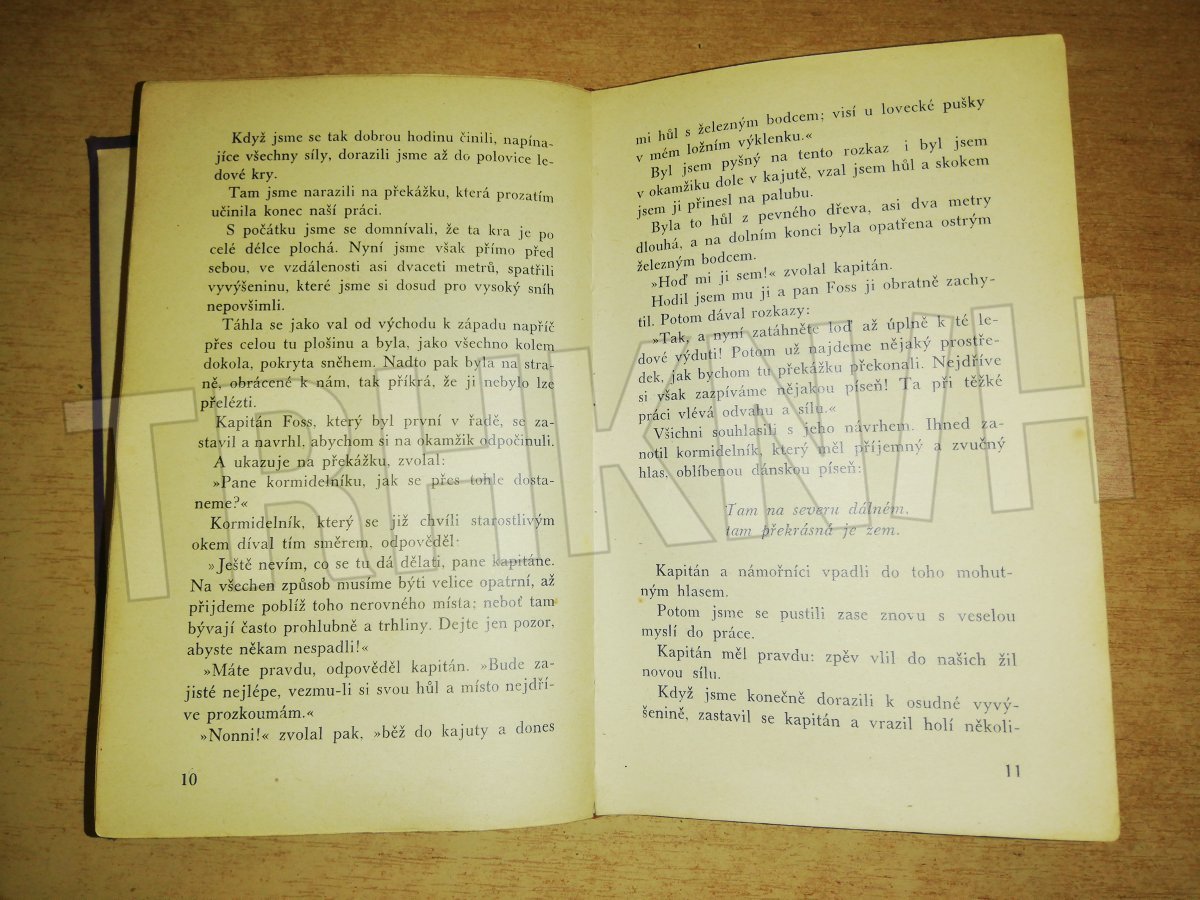 Když jsme se tak dobrou hodinu činili, napína-
jíce všechny síly, dorazili jsme až do polovice le-
dové kry.
Tam jsme narazili na překážku, která prozatím
učinila konec naší práci.
S počátku jsme se domnívali, že ta kra je po
celé délce plochá. Nyní jsme však přímo před
sebou, ve vzdálenosti asi dvaceti metrů, spatřili
vyvýšeninu, které jsme si dosud pro vysoký sníh
nepovšimli.
Táhla se jako val od východu k západu napříč
přes celou tu plošinu a byla, jako všechno kolem
dokola, pokryta sněhem. Nadto pak byla na stra-
ně, obrácené k nám, tak příkrá, že ji nebylo lze
přelézti.
Kapitán Foss, který byl první v řadě, se za-
stavil a navrhl, abychom si na okamžik odpočinuli.
A ukazuje na překážku, zvolal:
»Pane kormidelníku, jak se přes tohle dosta-
neme?«
Kormidelník, který se již chvíli starostlivým
okem díval tím směrem, odpověděl:
»Ještě nevím, co se tu dá dělati, pane kapitáne.
Na všechen způsob musíme býti velice opatrní, až
přijdeme poblíž toho nerovného místa; neboť tam
bývají často prohlubně a trhliny. Dejte jen pozor,
abyste někam nespadli!«
»Máte pravdu, odpověděl kapitán. »Bude za-
jisté nejlépe, vezmu-li si svou hůl a místo nejdří-
ve prozkoumám.«
»Nonni!« zvolal pak, »běž do kajuty a dones
10
mi hůl s železným bodcem; visí u lovecké pušky
v mém ložním výklenku.«
Byl jsem pyšný na tento rozkaz i byl jsem
v okamžiku dole v kajutě, vzal jsem hůl a skokem
jsem ji přinesl na palubu.
Byla to hůl z pevného dřeva, asi dva metry
dlouhá, a na dolním konci byla opatřena ostrým
železným bodcem.
»Hoď mi ji sem!« zvolal kapitán.
Hodil jsem mu ji a pan Foss ji obratně zachy-
til. Potom dával rozkazy:
»Tak, a nyní zatáhněte loď až úplně k té le-
dové výduti! Potom už najdeme nějaký prostře-
dek, jak bychom tu překážku překonali. Nejdříve
si však zazpíváme nějakou píseň! Ta při těžké
práci vlévá odvahu a sílu.«
Všichni souhlasili s jeho návrhem. Ihned za-
notil kormidelník, který měl příjemný a zvučný
hlas, oblíbenou dánskou píseň:
Tam na severu dálném,
tam překrásná je zem.
Kapitán a námořníci vpadli do toho mohut-
ným hlasem.
Potom jsme se pustili zase znovu s veselou
myslí do práce.
Kapitán měl pravdu: zpěv vlil do našich žil
novou sílu.
Když jsme konečně dorazili k osudné vyvý-
šenině, zastavil se kapitán a vrazil holí několi-
11
TRHKNIH